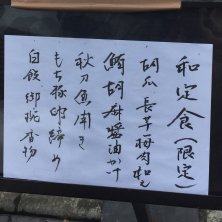 和定食(限定)
胡瓜長芋梅肉和え
鯛胡麻醤油かけ
秋刀魚開き
もち豚卵締め
白飯御椀香物